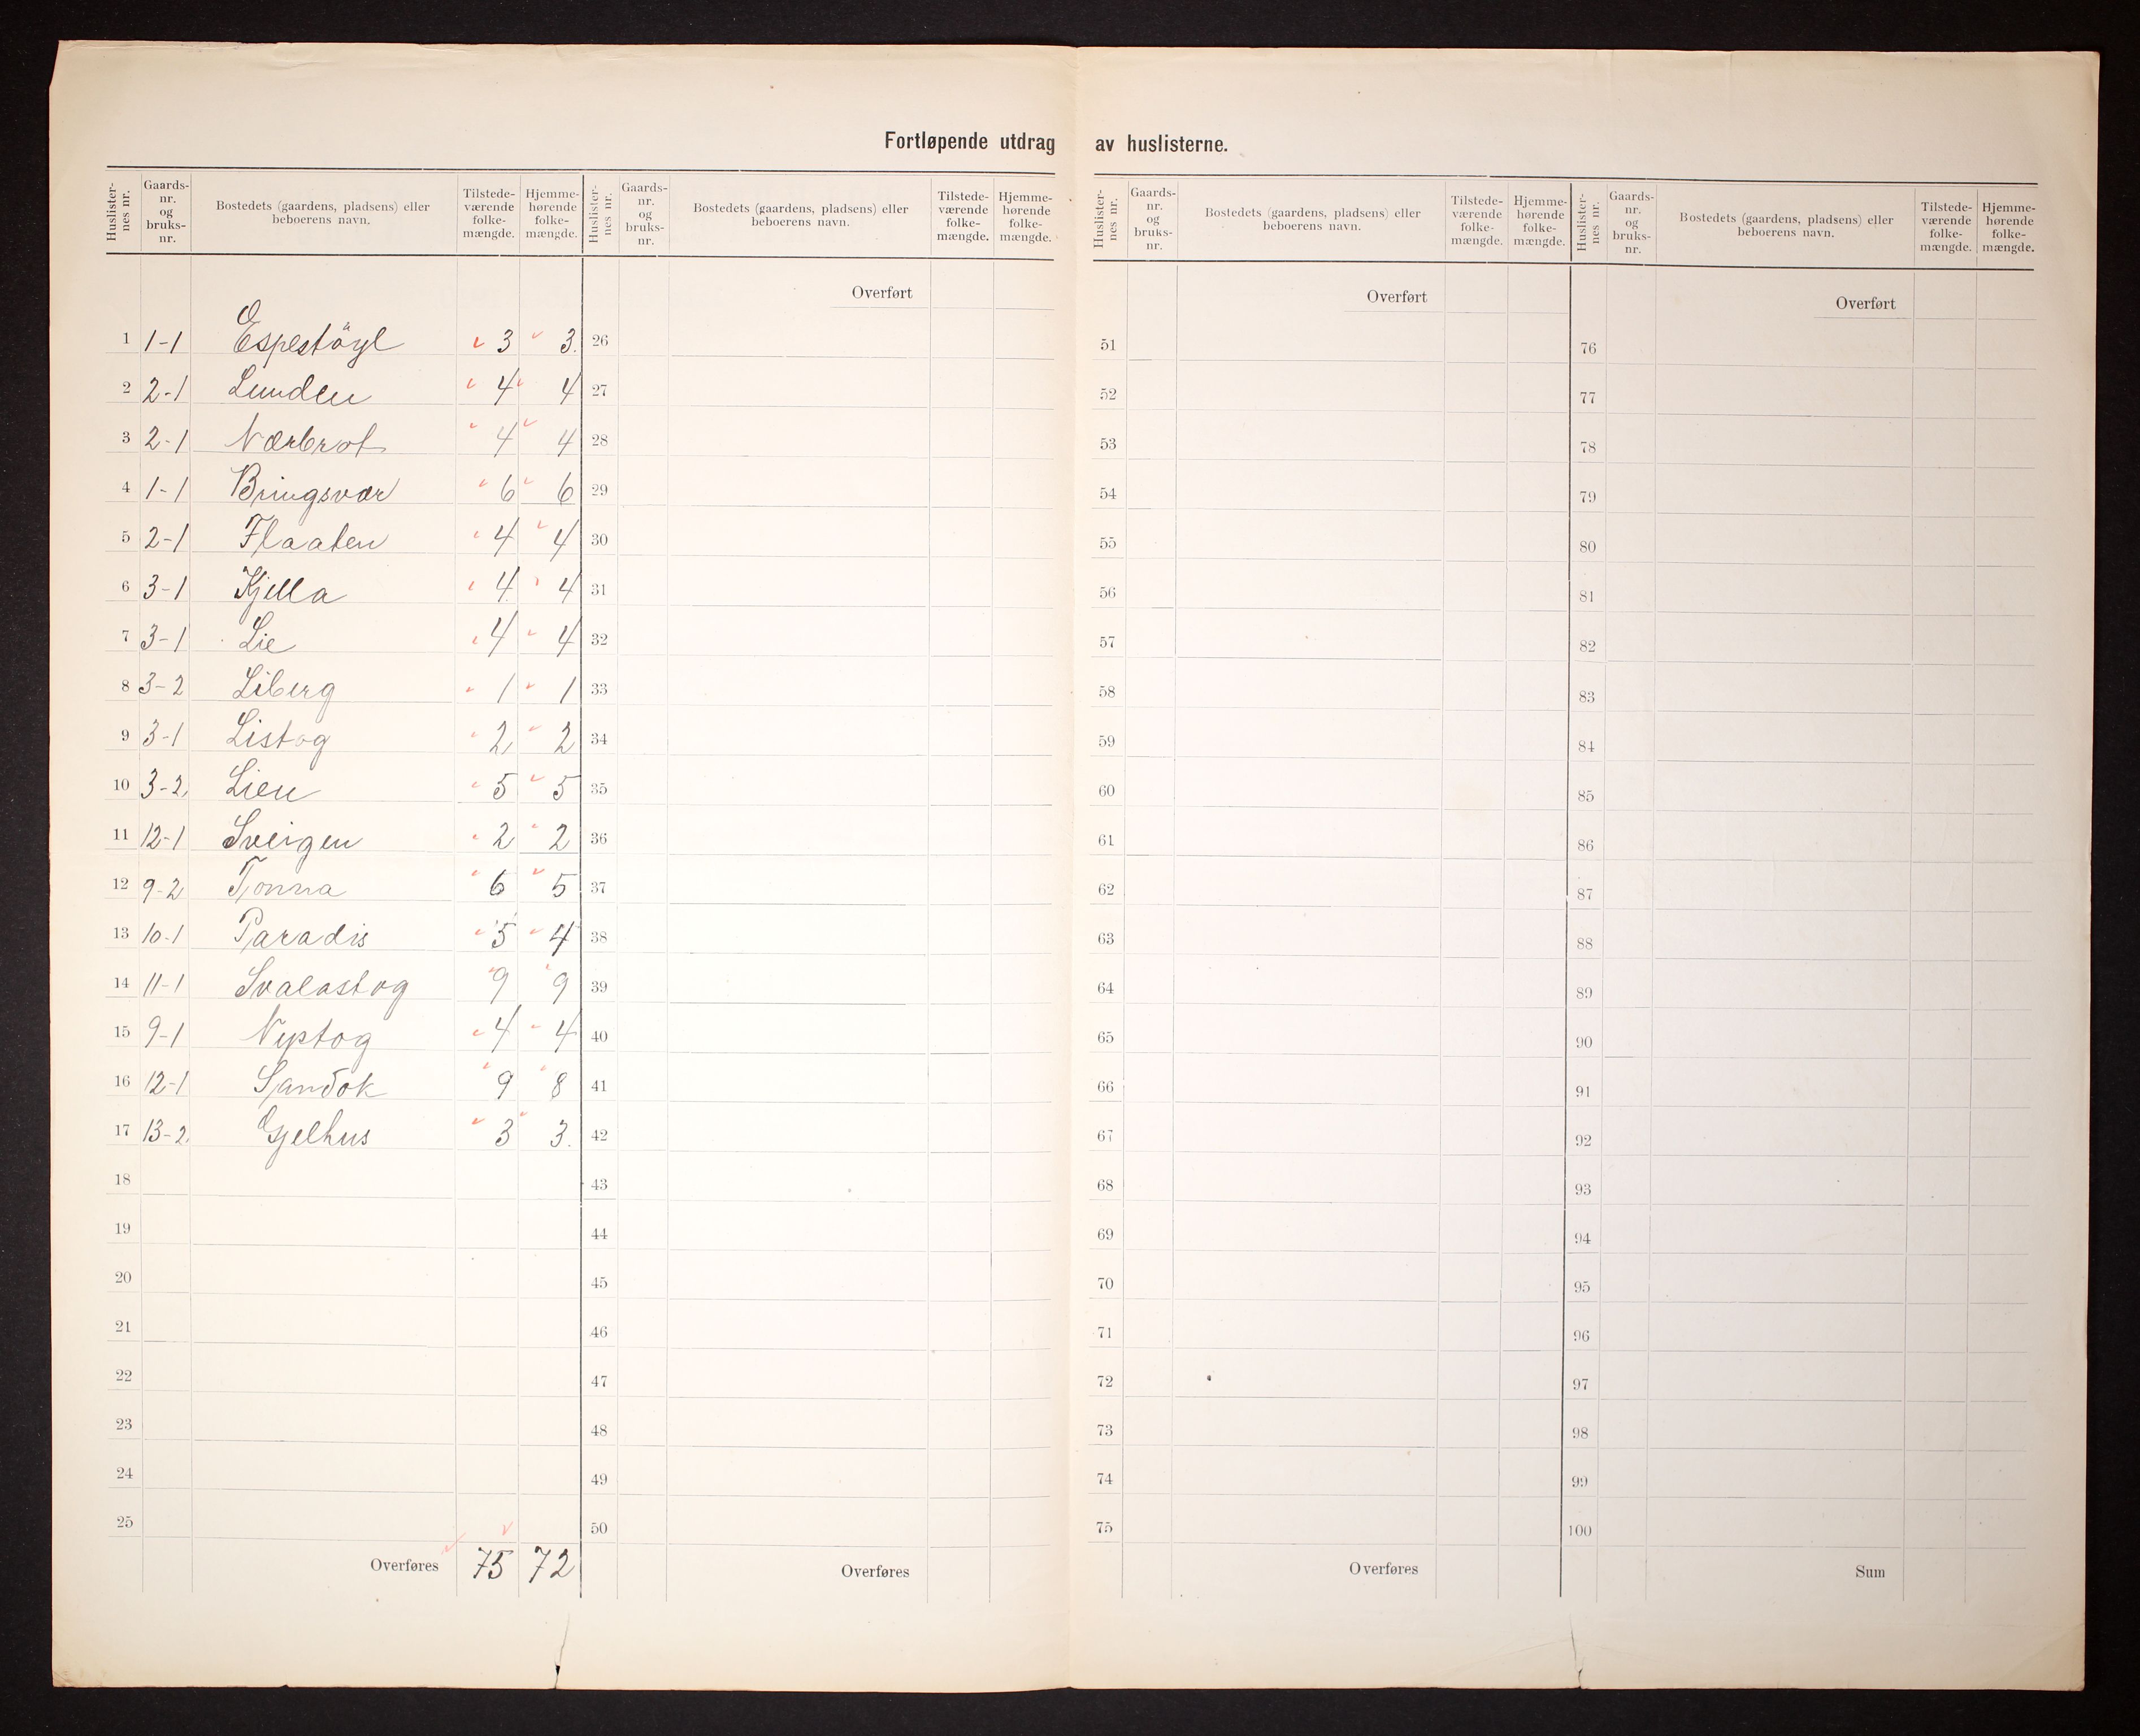 Fortløpende utdrag av huslisterne.
Huslister-nes nr. Gaards-nr. og bruks-nr. Bostedets (gaardens, pladsens) eller beboerens navn. Tilstede-værende folke-mængde. Hjemme-hørende folke-mængde.
Huslister-nes nr. Gaards-nr. og bruks-nr. Bostedets (gaardens, pladsens) eller beboerens navn. Tilstede-værende folke-mængde. Hjemme-hørende folke-mængde.
Huslister-nes nr. Gaards-nr. og bruks-nr. Bostedets (gaardens, pladsens) eller beboerens navn. Tilstede-værende folke-mængde. Hjemme-hørende folke-mængde.
Huslister-nes nr. Gaards-nr. og bruks-nr. Bostedets (gaardens, pladsens) eller beboerens navn. Tilstede-værende folke-mængde. Hjemme-hørende folke-mængde.
1 1-1 Espestöyl 3 3.
2 2-1 Lunden 4 4
3 2-1 Nærbrot 4 4
4 1-1 Bringsvær 6 6
5 2-1 Flaaten 4 4
6 3-1 Kjella 4 4
7 3-1 Lie 4 4
8 3-2 Liberg 1 1
9 3-1 Listog 2 2
10 3-2 Lien 5 5
11 12-1 Sveigen 2 2
12 9-2 Tjonna 6 5
13 10-1 Paradis 5 4
14 11-1 Svalastog 9 9
15 9-1 Nystog 4 4
16 12-1 Sandok 9 8
17 13-2 Gjelhus 3 3.
18
19
20
21
22
23
24
25
Overføres 75 72
Overført
26
27
28
29
30
31
32
33
34
35
36
37
38
39
40
41
42
43
44
45
46
47
48
49
50
Overføres
Overført
51
52
53
54
55
56
57
58
59
60
61
62
63
64
65
66
67
68
69
70
71
72
73
74
75
Overføres
Overført
76
77
78
79
80
81
82
83
84
85
86
87
88
89
90
91
92
93
94
95
96
97
98
99
100
Sum